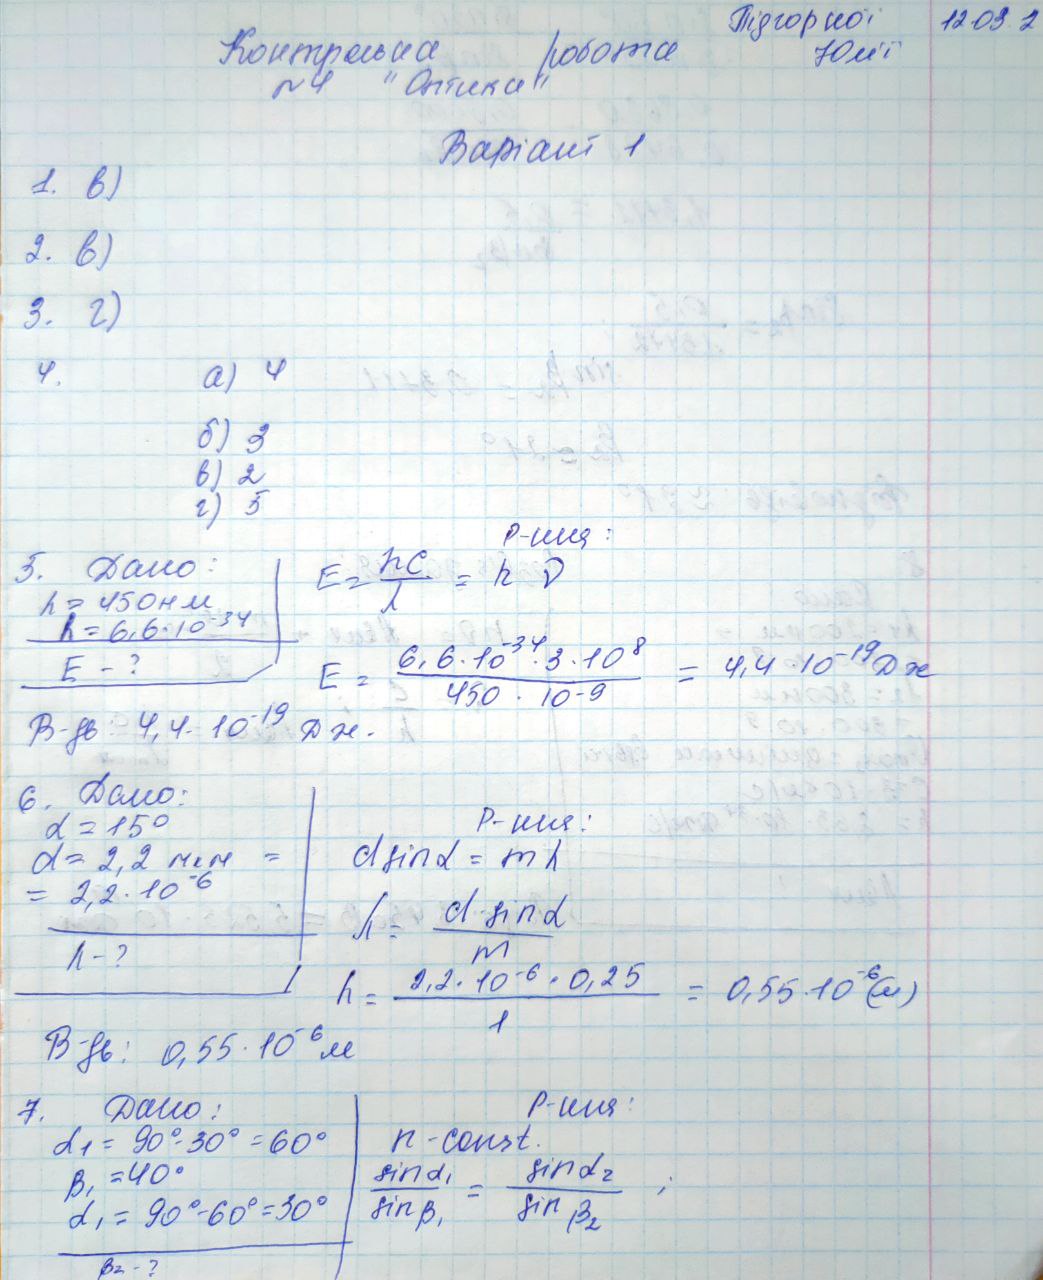 Підгорної 12.03.2
Контрольна робота Юлії
№4 "Оптика"
Варіант 1
1. в)
2. в)
3. г)
4. а) 4
б) 3
в) 2
г) 5
5. Дано:
λ = 450 нм
h = 6,6·10⁻³⁴
E - ?
Р-ння:
E = hc/λ = hν
E = 6,6·10⁻³⁴·3·10⁸/450·10⁻⁹ = 4,4·10⁻¹⁹ Дж
В-дь: 4,4·10⁻¹⁹ Дж.
6. Дано:
α = 15°
d = 2,2 мкм =
= 2,2·10⁻⁶
λ - ?
Р-ння:
d sinα = mλ
λ = d·sinα/m
λ = 2,2·10⁻⁶·0,25/1 = 0,55·10⁻⁶ (м)
В-дь: 0,55·10⁻⁶ м
7. Дано:
α₁ = 90°-30° = 60°
β₁ = 40°
α₁ = 90°-60° = 30°
β₂ - ?
Р-ння:
n - const.
sinα₁/sinβ₁ = sinα₂/sinβ₂ ;